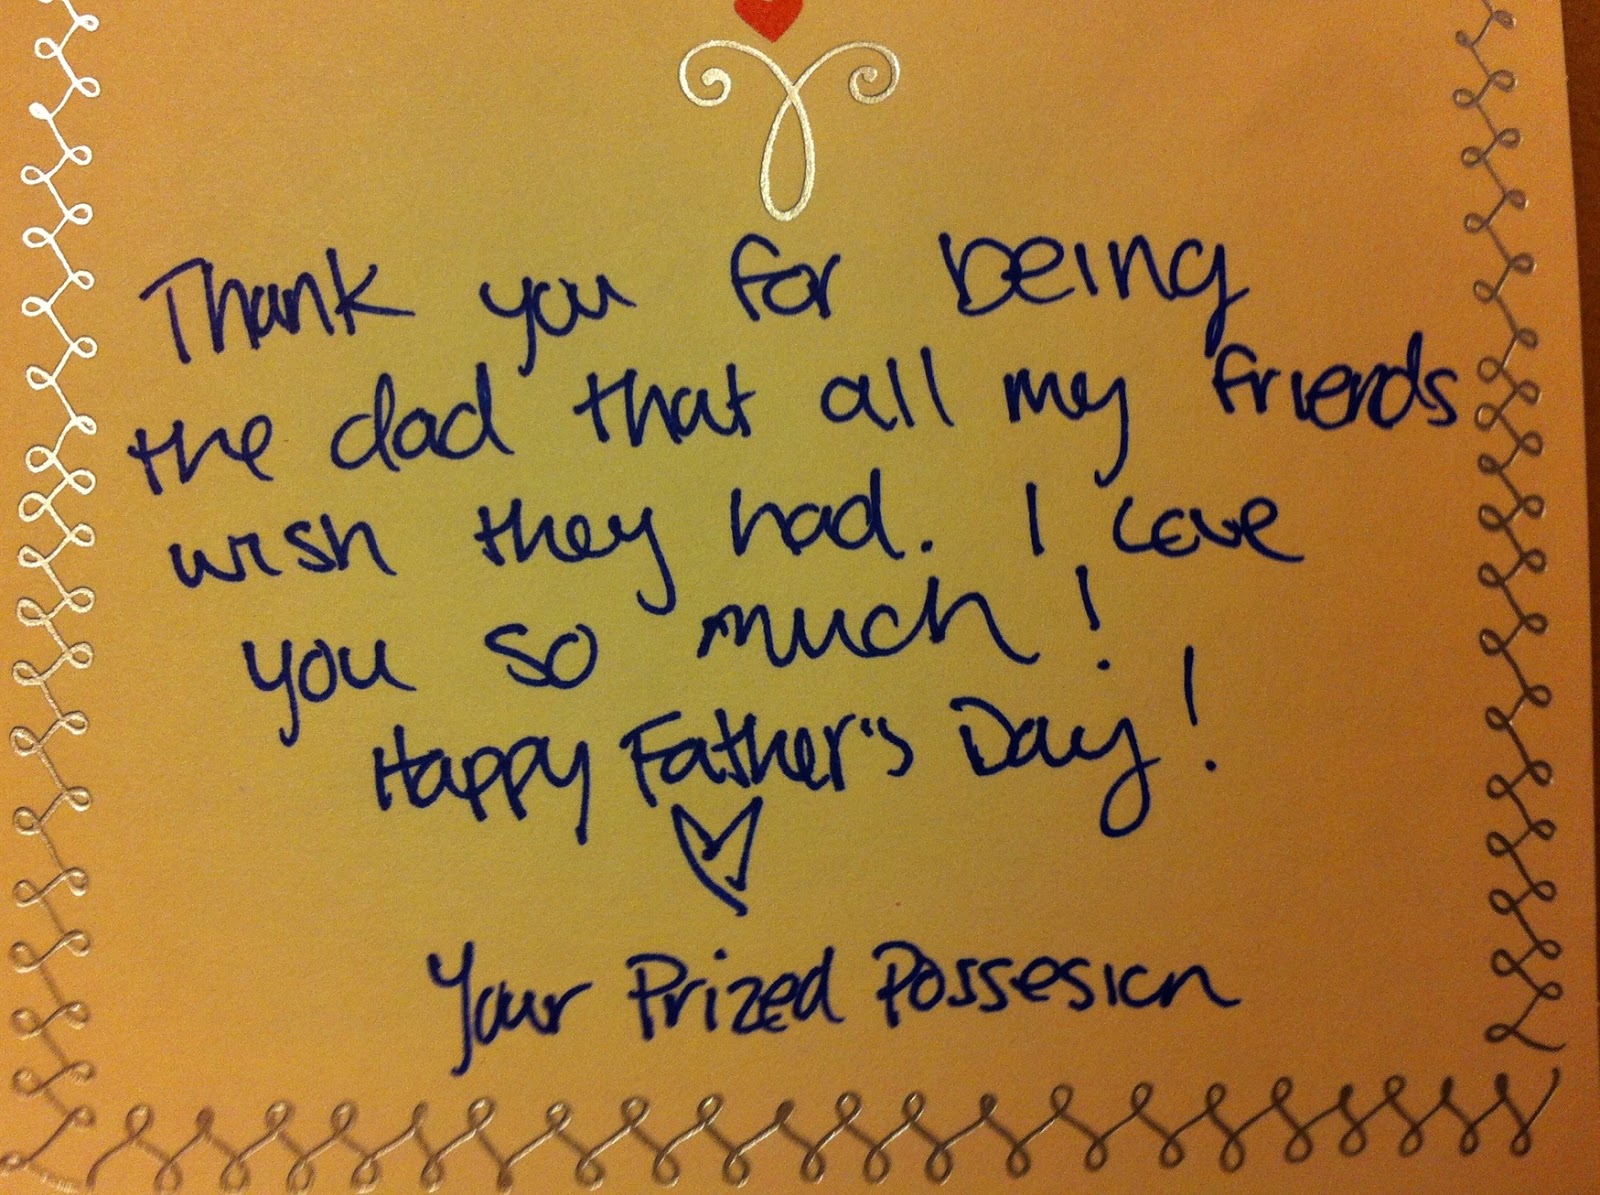 Thank you for being
the dad that all my friends
wish they had. I love
you so much!
Happy Father's Day!
Your Prized Possesion